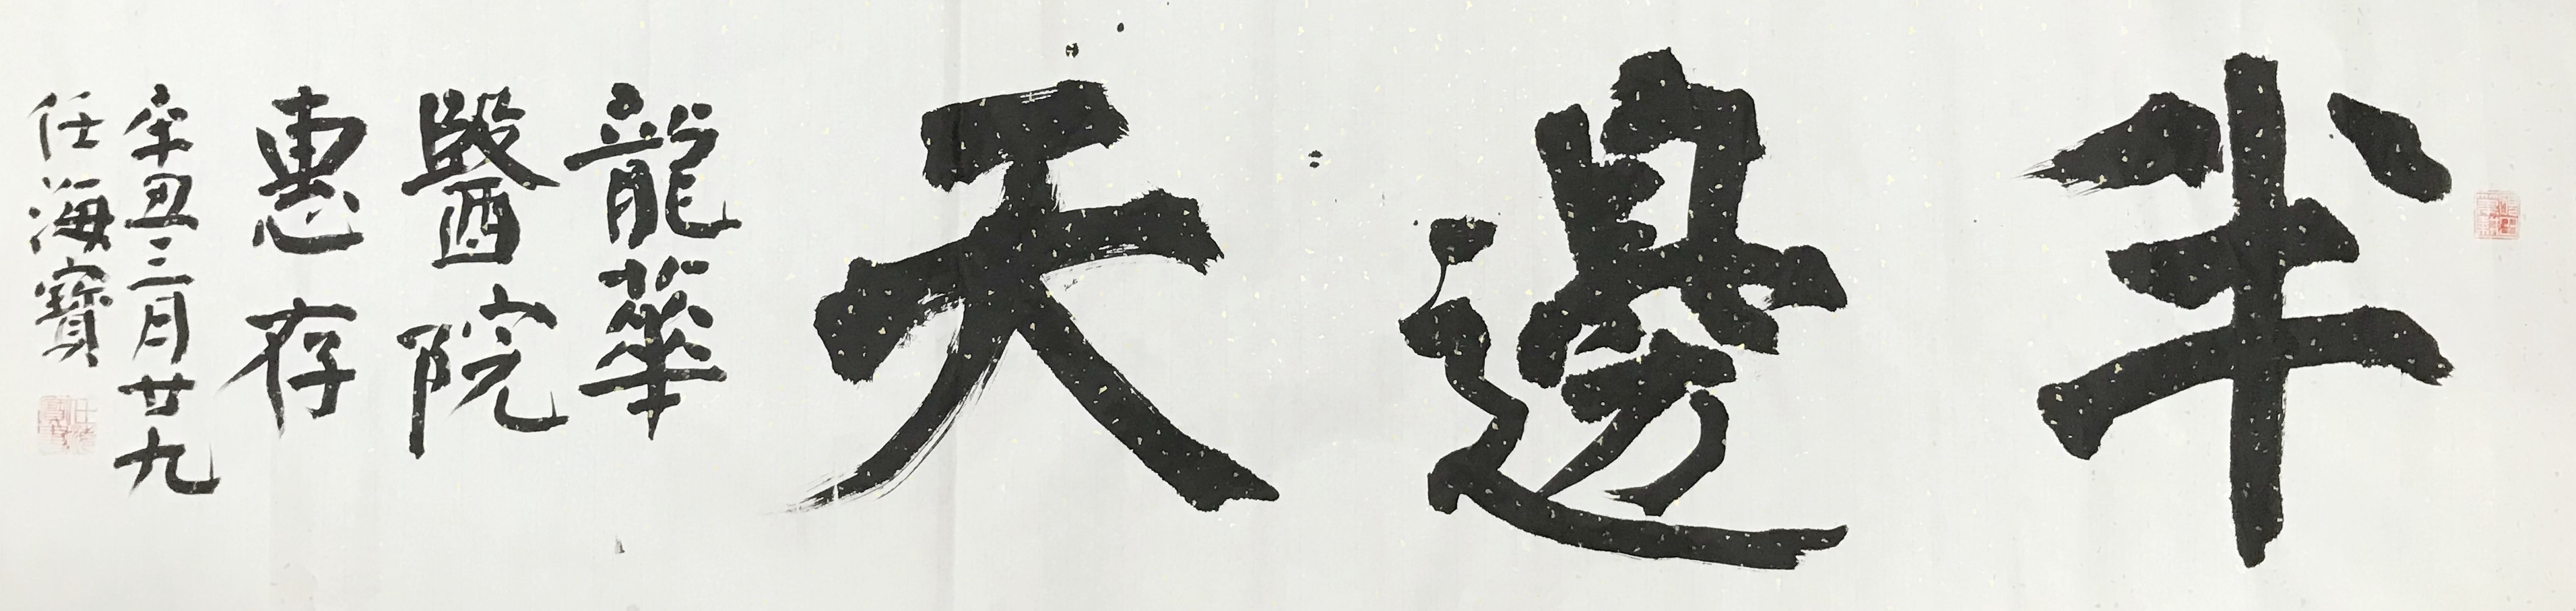 半邊天
龍華
醫院
惠存
辛丑三月廿九
任海寶